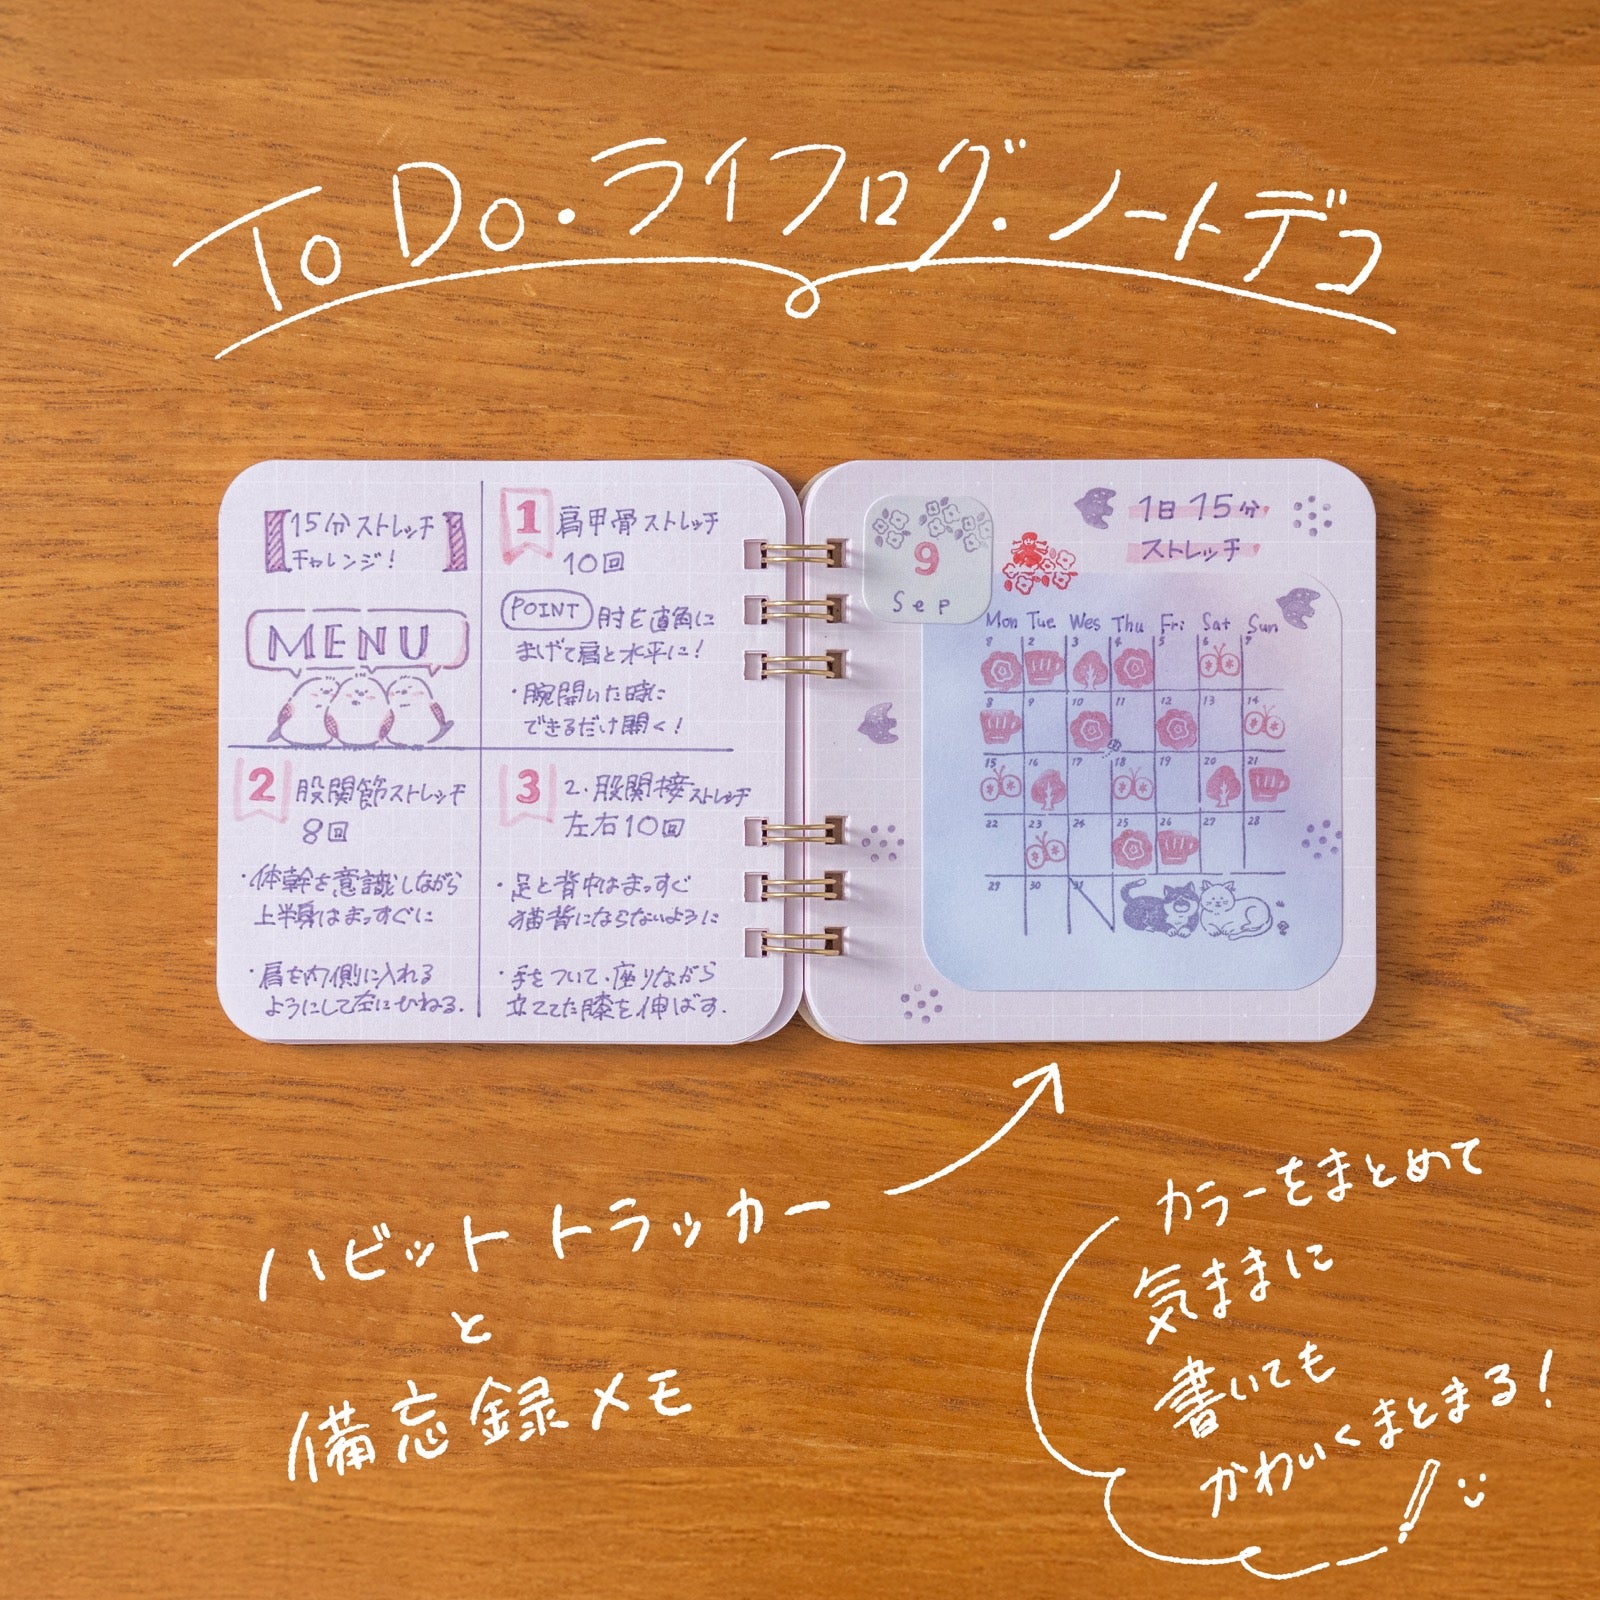 To Do・ライフログ・ノートデコ
15分ストレッチ
チャレンジ!
MENU
1 肩甲骨ストレッチ
10回
POINT 肘を直角に
まげて肩と水平に!
・腕開いた時に
できるだけ開く!
2 股関節ストレッチ
8回
・体幹を意識しながら
上半身はまっすぐに
・肩を内側に入れる
ようにして左にひねる.
3 2.股関接ストレッチ
左右10回
・足と背中はまっすぐ
猫背にならないように
・手をついて、座りながら
立ててた膝を伸ばす.
9
Sep
1日15分
ストレッチ
Mon Tue Wes Thu Fri Sat Sun
1 2 3 4 5 6 7
8 9 10 11 12 13 14
15 16 17 18 19 20 21
22 23 24 25 26 27 28
29 30 31
ハビットトラッカー
と
備忘録メモ
カラーをまとめて
気ままに
書いても
かわいくまとまる!